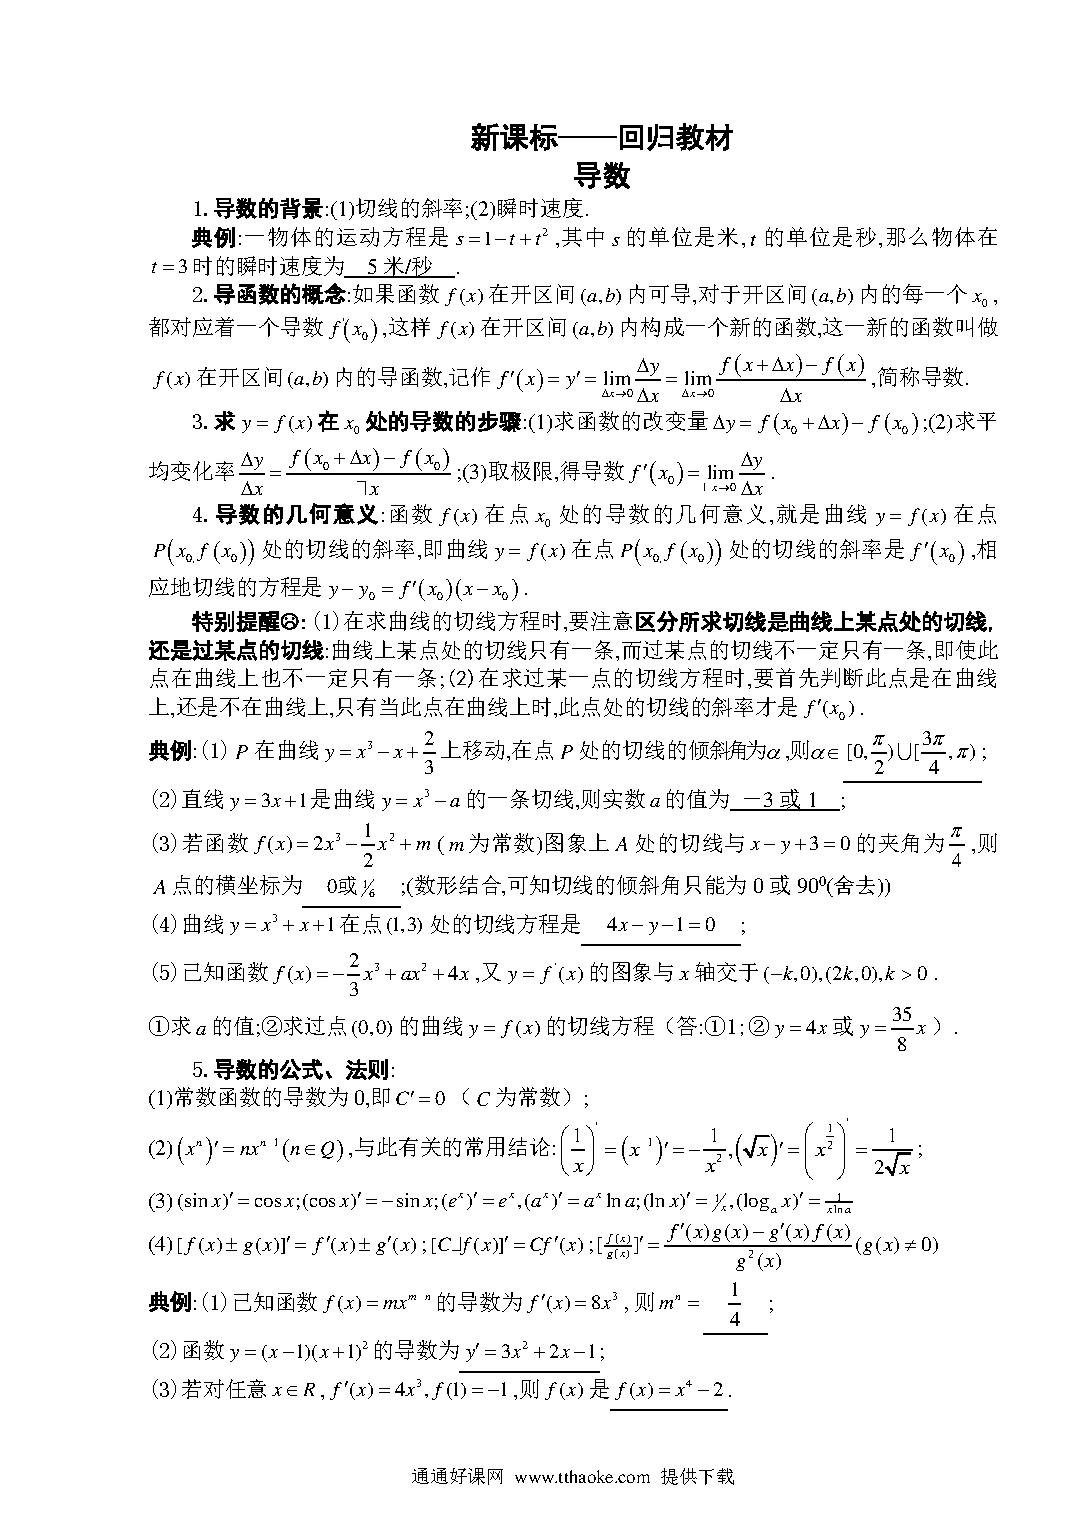 新课标——回归教材
导数
1.导数的背景:(1)切线的斜率;(2)瞬时速度.
典例:一物体的运动方程是 s=1−t+t² ,其中 s 的单位是米, t 的单位是秒,那么物体在
t=3时的瞬时速度为 5米/秒 .
2.导函数的概念:如果函数 f(x) 在开区间(a,b) 内可导,对于开区间(a,b) 内的每一个 x₀ ,
都对应着一个导数 f′(x₀) ,这样 f(x) 在开区间(a,b) 内构成一个新的函数,这一新的函数叫做
f(x) 在开区间(a,b) 内的导函数,记作 f′(x)=y′=lim_{Δx→0} Δy/Δx = lim_{Δx→0} (f(x+Δx)−f(x))/Δx ,简称导数.
3.求 y=f(x) 在 x₀ 处的导数的步骤:(1)求函数的改变量 Δy=f(x₀+Δx)−f(x₀);(2)求平
均变化率 Δy/Δx = (f(x₀+Δx)−f(x₀))/┐x ;(3)取极限,得导数 f′(x₀)=lim_{x→0} Δy/Δx .
4.导数的几何意义:函数 f(x) 在点 x₀ 处的导数的几何意义,就是曲线 y=f(x) 在点
P(x₀,f(x₀)) 处的切线的斜率,即曲线 y=f(x) 在点 P(x₀,f(x₀)) 处的切线的斜率是 f′(x₀) ,相
应地切线的方程是 y−y₀=f′(x₀)(x−x₀) .
特别提醒☹:(1)在求曲线的切线方程时,要注意区分所求切线是曲线上某点处的切线,
还是过某点的切线:曲线上某点处的切线只有一条,而过某点的切线不一定只有一条,即使此
点在曲线上也不一定只有一条;(2)在求过某一点的切线方程时,要首先判断此点是在曲线
上,还是不在曲线上,只有当此点在曲线上时,此点处的切线的斜率才是 f′(x₀) .
典例:(1) P 在曲线 y=x³−x+2/3 上移动,在点 P 处的切线的倾斜角为α ,则α∈ [0,π/2)∪[3π/4,π) ;
(2)直线 y=3x+1是曲线 y=x³−a 的一条切线,则实数 a 的值为 −3或1 ;
(3)若函数 f(x)=2x³−1/2x²+m ( m 为常数)图象上 A 处的切线与 x−y+3=0 的夹角为 π/4 ,则
A 点的横坐标为 0或1/6 ;(数形结合,可知切线的倾斜角只能为0或90⁰(舍去))
(4)曲线 y=x³+x+1在点(1,3) 处的切线方程是 4x−y−1=0 ;
(5)已知函数 f(x)=−2/3x³+ax²+4x ,又 y=f′(x) 的图象与 x 轴交于 (−k,0),(2k,0),k>0 .
①求 a 的值;②求过点(0,0) 的曲线 y=f(x) 的切线方程（答:①1;② y=4x 或 y=35/8x ）.
5.导数的公式、法则:
(1)常数函数的导数为0,即 C′=0（ C 为常数）;
(2)(xⁿ)′=nxⁿ ¹(n∈Q),与此有关的常用结论:(1/x)′=(x ¹)′=−1/x²,(√x)′=(x^{1/2})′=1/(2√x) ;
(3)(sin x)′=cos x;(cos x)′=−sin x;(eˣ)′=eˣ,(aˣ)′=aˣ ln a;(ln x)′=1/x,(logₐ x)′=1/(x ln a)
(4)[f(x)±g(x)]′=f′(x)±g′(x);[C⨼f(x)]′=Cf′(x);[f(x)/g(x)]′=(f′(x)g(x)−g′(x)f(x))/g²(x) (g(x)≠0)
典例:(1)已知函数 f(x)=mx^{m n} 的导数为 f′(x)=8x³ ,则 mⁿ= 1/4 ;
(2)函数 y=(x−1)(x+1)² 的导数为 y′=3x²+2x−1;
(3)若对任意 x∈R, f′(x)=4x³,f(1)=−1,则 f(x) 是 f(x)=x⁴−2 .
通通好课网 www.tthaoke.com 提供下载